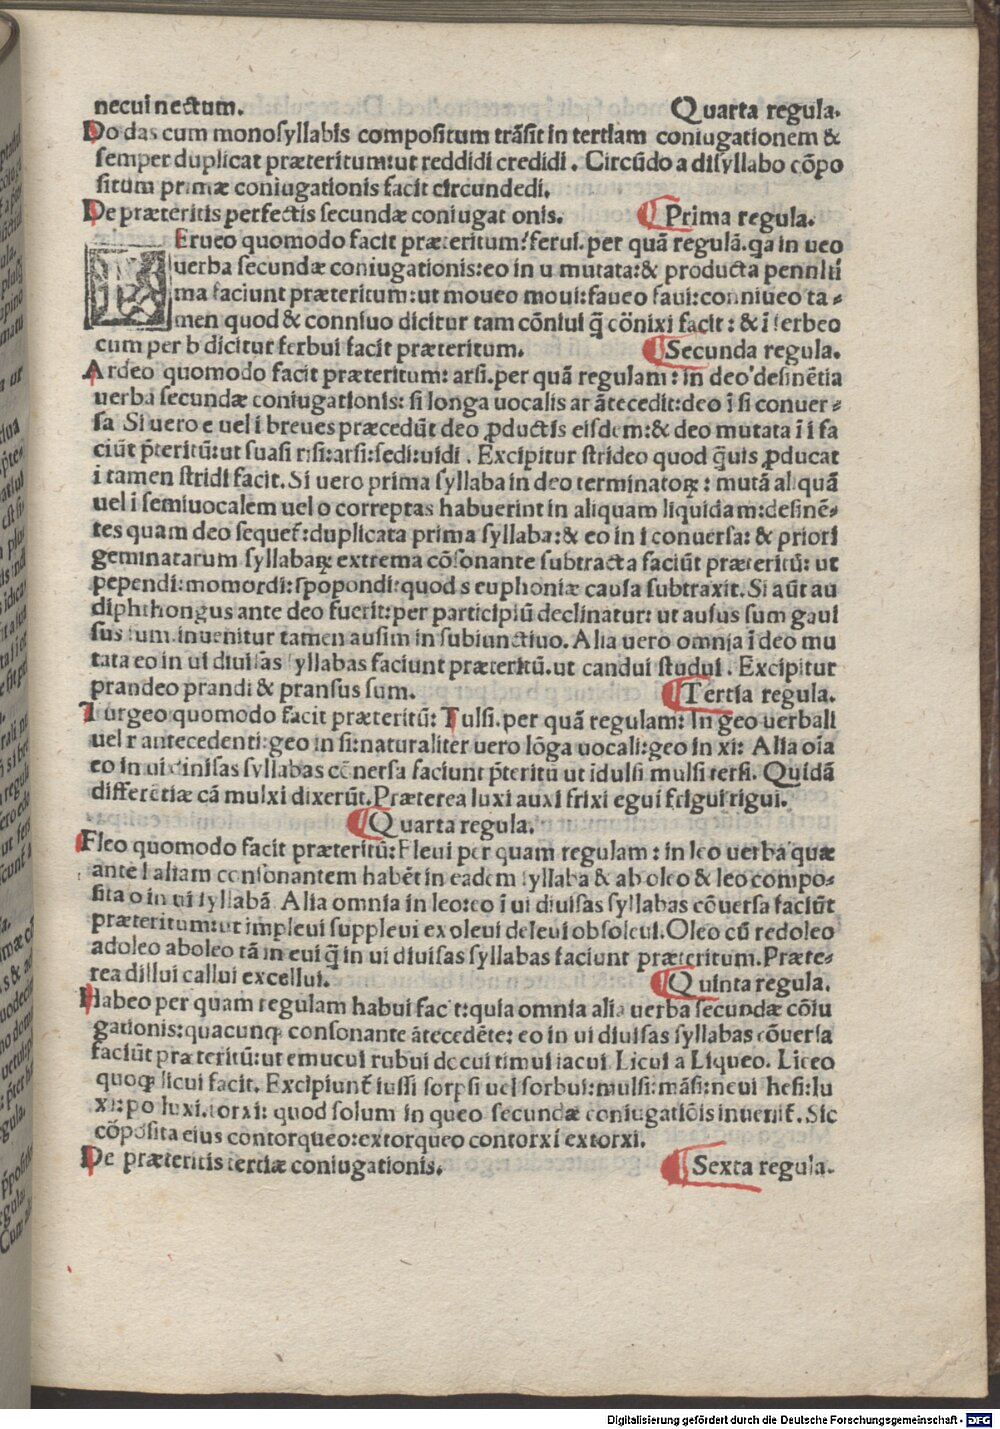 necui nectum.
Quarta regula.
Do das cum monosyllabis compositum trãsit in tertiam coniugationem &
semper duplicat præteritum:ut reddidi credidi. Circũdo a disyllabo cõpo
situm primæ coniugationis facit circundedi.
De præteritis perfectis secundæ coniugat onis.
Prima regula.
Erueo quomodo facit præteritum? ferui. per quã regulã. qa in ueo
uerba secundæ coniugationis:eo in u mutata:& producta penulti
ma faciunt præteritum:ut moueo moui:faueo faui:conniueo ta-
men quod & conniuo dicitur tam cõniui q̃ cõnixi facit: & i ferbeo
cum per b dicitur ferbui facit præteritum.
Secunda regula.
Ardeo quomodo facit præteritum: arsi. per quã regulam: in deo desinẽtia
uerba secundæ coniugationis: si longa uocalis ar ãtecedit:deo ĩ si conuer-
sa Si uero e uel i breues præcedũt deo ꝓductis eisdem:& deo mutata ĩ i fa
ciũt p̃teritũ:ut suasi risi:arsi:sedi:uidi. Excipitur strideo quod q̃uis ꝓducat
i tamen stridi facit. Si uero prima syllaba in deo terminatoꝝ: mutã aliquã
uel i semiuocalem uel o correptas habuerint in aliquam liquidam:desinẽ-
tes quam deo sequet̃:duplicata prima syllaba:& eo in i conuersa: & priori
geminatarum syllabaꝝ extrema cõsonante subtracta faciũt præteritũ: ut
pependi:momordi:spopondi:quod s euphoniæ causa subtraxit. Si aũt au
diphthongus ante deo fuerit:per participiũ declinatur: ut ausus sum gaui
sus sum. inuenitur tamen ausim in subiunctiuo. Alia uero omnia ĩ deo mu
tata eo in ui diuisas syllabas faciunt præteritũ. ut candui studui. Excipitur
prandeo prandi & pransus sum.
Tertia regula.
Turgeo quomodo facit præteritũ: Tulsi. per quã regulam: In geo uerbali
uel r antecedenti:geo in si:naturaliter uero lõga uocali:geo in xi: Alia oĩa
eo in ui diuisas syllabas cõuersa faciunt p̃teritũ ut idulsi mulsi tersi. Quidã
differẽtiæ cã mulxi dixerũt. Præterea luxi auxi frixi egui frigui rigui.
Quarta regula.
Fleo quomodo facit præteritũ: Fleui per quam regulam: in leo uerba quæ
ante l aliam consonantem habẽt in eadem syllaba & ab oleo & leo compo-
sita o in ui syllabã Alia omnia in leo:eo ĩ ui diuisas syllabas cõuersa faciũt
præteritum:ut impleui suppleui exoleui deleui obsoleui. Oleo cũ redoleo
adoleo aboleo tã in eui q̃ in ui diuisas syllabas faciunt præteritum. Præte-
rea dillui callui excellui.
Quinta regula.
Habeo per quam regulam habui fac t: quia omnia alia uerba secundæ cõiu
gationis:quacunqꝫ consonante ãtecedẽte: eo in ui diuisas syllabas cõuersa
faciũt præteritũ:ut emucui rubui decui timui iacui Licui a Liqueo. Liceo
quoqꝫ licui facit. Excipiunt̃ iussi sorpsi uel sorbui:mulsi:mãsi:neui hesi:lu
xi:po luxi. torxi: quod solum in queo secundæ coniugatiõis inuenit̃. Sic
cõposita eius contorqueo:extorqueo contorxi extorxi.
De præteritis tertiæ coniugationis.
Sexta regula.
Digitalisierung gefördert durch die Deutsche Forschungsgemeinschaft - DFG